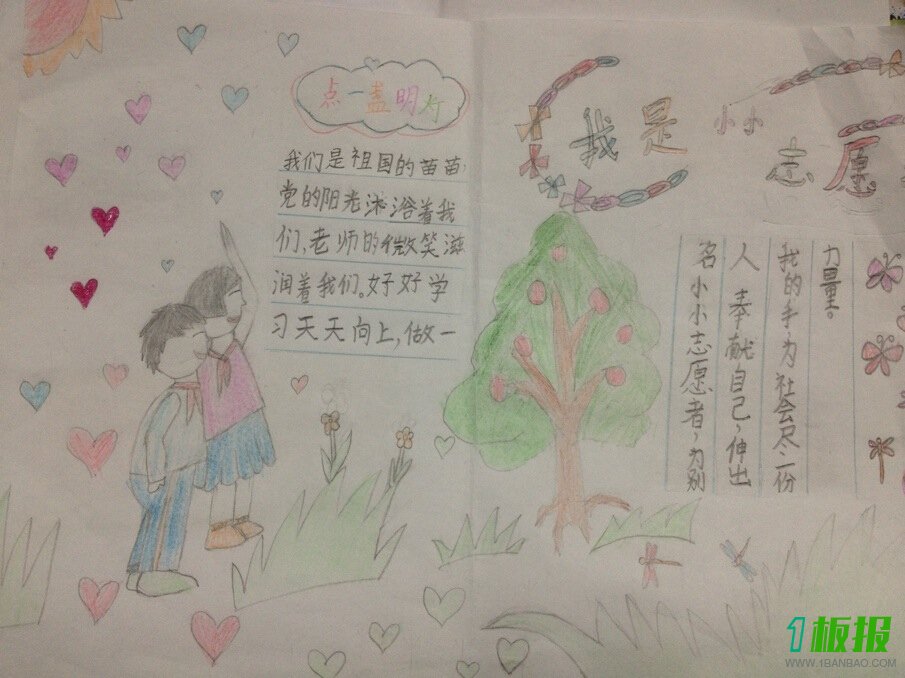 点一盏明灯
我们是祖国的苗苗,
党的阳光沐浴着我
们,老师的微笑滋
润着我们。好好学
习天天向上,做一
我是小小志愿
名小小志愿者,为别
人奉献自己,伸出
我的手,为社会尽一份
力量。
1板报
WWW.1BANBAO.COM